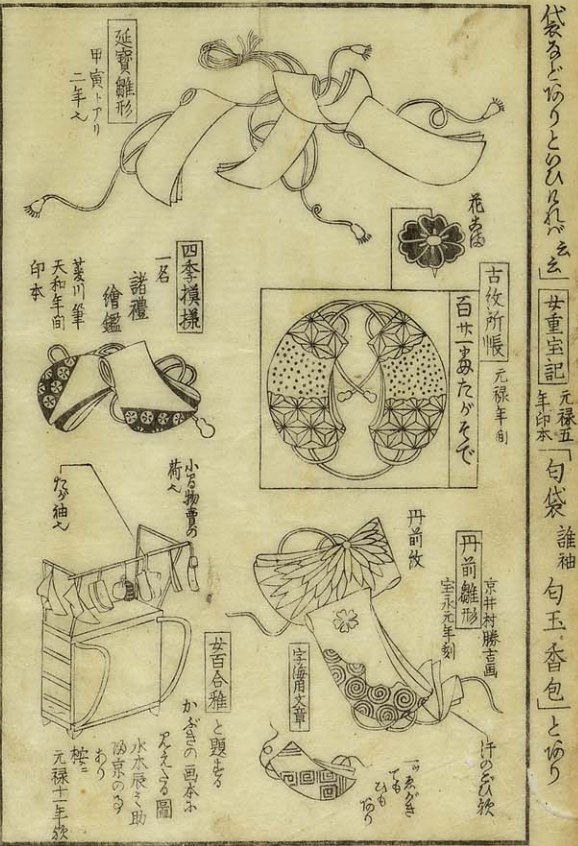 袋などありといひけれバ云云」
女重宝記
元禄五
年印本
「匂袋
誰袖
匂玉・香包」とあり
延寳雛形
甲寅トアリ
二年也
花むすび
古紋所帳
元禄年間
百廿一番たがそで
四季模様
一名
諸禮
繪鑑
菱川筆
天和年間
印本
小間物賣の
荷也
たが袖也
丹前紋
丹前雛形
京井村勝吉画
宝永元年刻
字海用文章
女百合稚
と題する
かぶきの画本に
見えたる圖
水木辰之助
あり
按ニ
元禄十一年歟